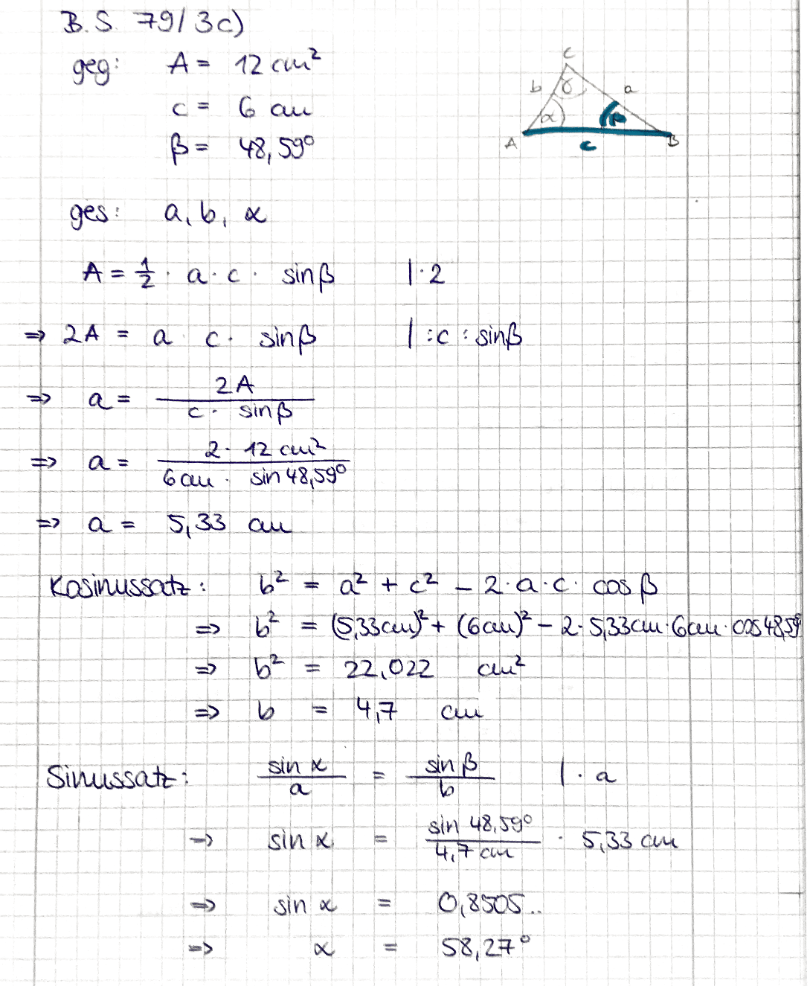 B.S. 79/3c)
geg: A = 12 cm²
c = 6 cm
β = 48,59°
C
b γ a
α β
A c B
ges: a, b, α
A = 1/2 · a · c · sinβ |·2
⇒ 2A = a c · sinβ |:c :sinβ
⇒ a = 2A / (c · sinβ)
⇒ a = (2 · 12 cm²) / (6cm · sin 48,59°)
⇒ a = 5,33 cm
Kosinussatz: b² = a² + c² - 2·a·c· cosβ
⇒ b² = (5,33cm)² + (6cm)² - 2·5,33cm·6cm·cos48,59°
⇒ b² = 22,022 cm²
⇒ b = 4,7 cm
Sinussatz: sin α / a = sin β / b |· a
⇒ sin α = sin 48,59° / 4,7 cm · 5,33 cm
⇒ sin α = 0,8505..
⇒ α = 58,27°